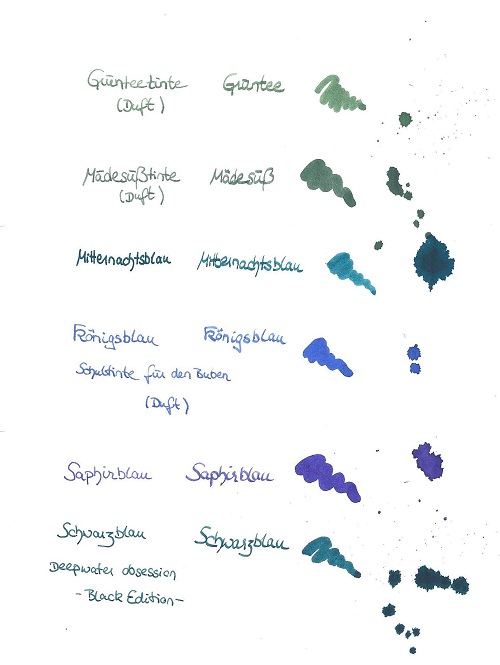 Grünteetinte Grüntee
(Duft)
Mädesüßtinte Mädesüß
(Duft)
Mitternachtsblau Mitternachtsblau
Königsblau Königsblau
Schultinte für den Buben
(Duft)
Saphirblau Saphirblau
Schwarzblau Schwarzblau
Deepwater obsession
-Black Edition-